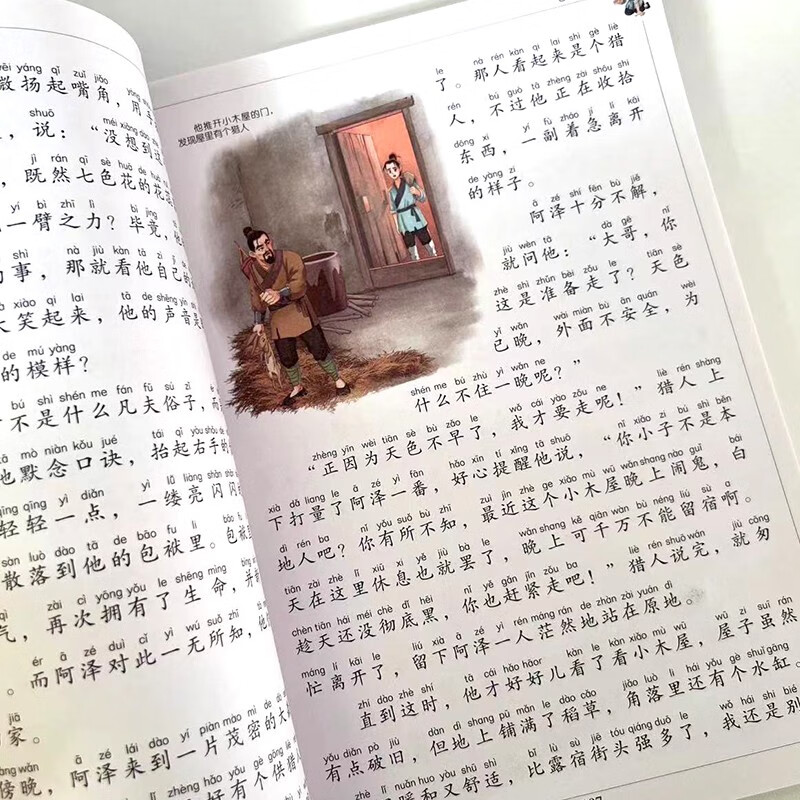 wēi yáng qǐ zuǐ jiǎo
微扬起嘴角，用手
shuō
，说：“没想到这
jì rán qī sè huā de huā
，既然七色花的花
yí bì zhī lì bì jìng
一臂之力？毕竟，他
shì nà jiù kàn tā zì jǐ
的事，那就看他自己的
xiào qǐ lai tā de shēng yīn
大笑起来，他的声音是
de mú yàng
的模样？
bú shì shén me fán fū sú zǐ
不是什么凡夫俗子，而
mò niàn kǒu jué tái qǐ yòu shǒu de
地默念口诀，抬起右手的
qīng qīng yì diǎn yì lǚ liàng shǎn shǎn
轻轻一点，一缕亮闪闪
sàn luò dào tā de bāo fu li bāo fu
散落到他的包袱里。包袱
qì zài cì yōng yǒu le shēng mìng
气，再次拥有了生命，并
ér ā zé duì cǐ yì wú suǒ zhī
。而阿泽对此一无所知，他
jiā
家。
bàng wǎn ā zé lái dào yí piàn mào mì de
傍晚，阿泽来到一片茂密的大
好有个供猎
他推开小木屋的门，
发现屋里有个猎人
le nà rén kàn qi lai shì gè liè
了。那人看起来是个猎
rén bú guò tā zhèng zài shōu shi
人，不过他正在收拾
dōng xi yí fù zháo jí lí kāi
东西，一副着急离开
de yàng zi
的样子。
ā zé shí fēn bù jiě
阿泽十分不解，
jiù wèn tā dà gē nǐ
就问他：“大哥，你
zhè shì zhǔn bèi zǒu le tiān sè
这是准备走了？天色
yǐ wǎn wài miàn bù ān quán wèi
已晚，外面不安全，为
shén me bú zhù yì wǎn ne
什么不住一晚呢？”
zhèng yīn wèi tiān sè bù zǎo le wǒ cái yào zǒu ne liè rén shàng
“正因为天色不早了，我才要走呢！”猎人上
xià dǎ liang le ā zé yì fān hǎo xīn tí xǐng tā shuō nǐ xiǎo zi bú shì běn
下打量了阿泽一番，好心提醒他说，“你小子不是本
dì rén ba nǐ yǒu suǒ bù zhī zuì jìn zhè ge xiǎo mù wū wǎn shang nào guǐ bái
地人吧？你有所不知，最近这个小木屋晚上闹鬼，白
tiān zài zhè lǐ xiū xi yě jiù bà le wǎn shang kě qiān wàn bù néng liú sù a
天在这里休息也就罢了，晚上可千万不能留宿啊。
chèn tiān hái méi chè dǐ hēi nǐ yě gǎn jǐn zǒu ba liè rén shuō wán jiù cōng
趁天还没彻底黑，你也赶紧走吧！”猎人说完，就匆
máng lí kāi le liú xià ā zé yì rén máng rán de zhàn zài yuán dì
忙离开了，留下阿泽一人茫然地站在原地。
zhí dào zhè shí tā cái hǎo hāor kàn le kàn xiǎo mù wū wū zi suī rán
直到这时，他才好好儿看了看小木屋，屋子虽然
yǒu diǎn pò jiù dàn dì shang pū mǎn le dào cǎo jiǎo luò li hái yǒu gè shuǐ gāng
有点破旧，但地上铺满了稻草，角落里还有个水缸。
wǒ hái shi bié
暖和又舒适，比露宿街头强多了，我还是别